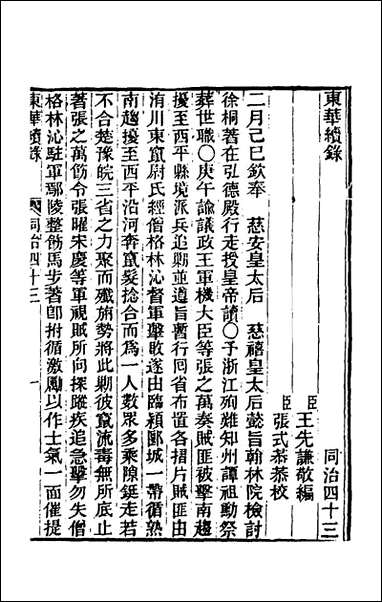 東華續錄
同治四十三
臣王先謙敬編
臣張式恭恭校
二月己巳欽奉　慈安皇太后　慈禧皇太后懿旨翰林院檢討
徐桐著在弘德殿行走授皇帝讀〇予浙江殉難知州譚祖勳祭
葬世職〇庚午諭議政王軍機大臣等張之萬奏賊匪被擊南趨
擾至西平縣境派兵追勦並遵旨暫行回省布置各摺片賊匪由
洧川東竄尉氏經僧格林沁督軍擊敗遂由臨潁郾城一帶循熟
南趨擾至西平沿河奔竄髮捻合而爲一人數眾多乘隙鋌走若
不合楚豫皖三省之力聚而殲旃勢將此勦彼竄流毒無所底止
著張之萬飭令張曜宋慶等軍視賊所向探蹤疾追急擊勿失僧
格林沁駐軍鄢陵整飭馬步著卽拊循激勵以作士氣一面催提
東華續錄
同治四十三
一